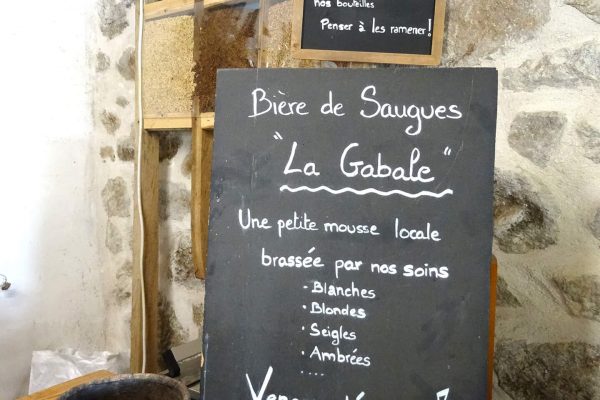 nos bouteilles
Penser à les ramener!
Bière de Saugues
"La Gabale"
Une petite mousse locale
brassée par nos soins
- Blanches
- Blondes
- Seigles
- Ambrées
....